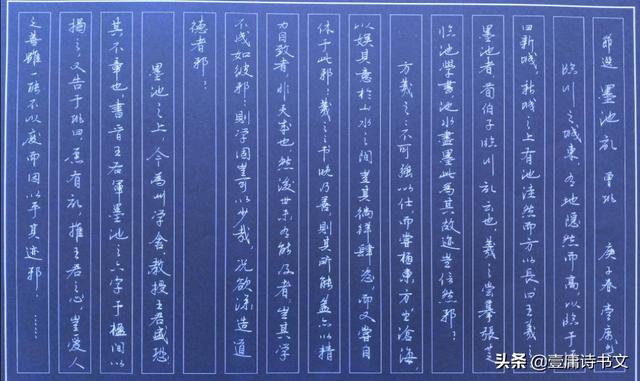 節選 墨池記 曾巩 庚子春
臨川之城東,有地隱然而高,以臨于
曰新城。新城之上有池洼然而方以長曰王羲之
墨池者,荀伯子臨川記云也,羲之嘗慕張芝
臨池學書,池水盡墨,此為其故迹,豈信然邪?
方羲之之不可強以仕,而嘗極東方,出滄海,
以娛其意於山水之間,豈其徜徉肆恣,而又嘗自
休于此邪?羲之之书晚乃善,則其所能,蓋亦以精
力自致者,非天成也。然後世未有能及者,豈其學
不成如彼邪?則學固豈可以少哉,况欲深造道
德者邪?
墨池之上,今為州學舍。教授王君盛恐
其不章也,書晋王右軍墨池之六字于楹間以
揭之,又告于巩曰:愿有記,推王君之心,豈愛人
之善,雖一能不以廢,而因以乎其迹邪?……
头条 @壹庸诗书文